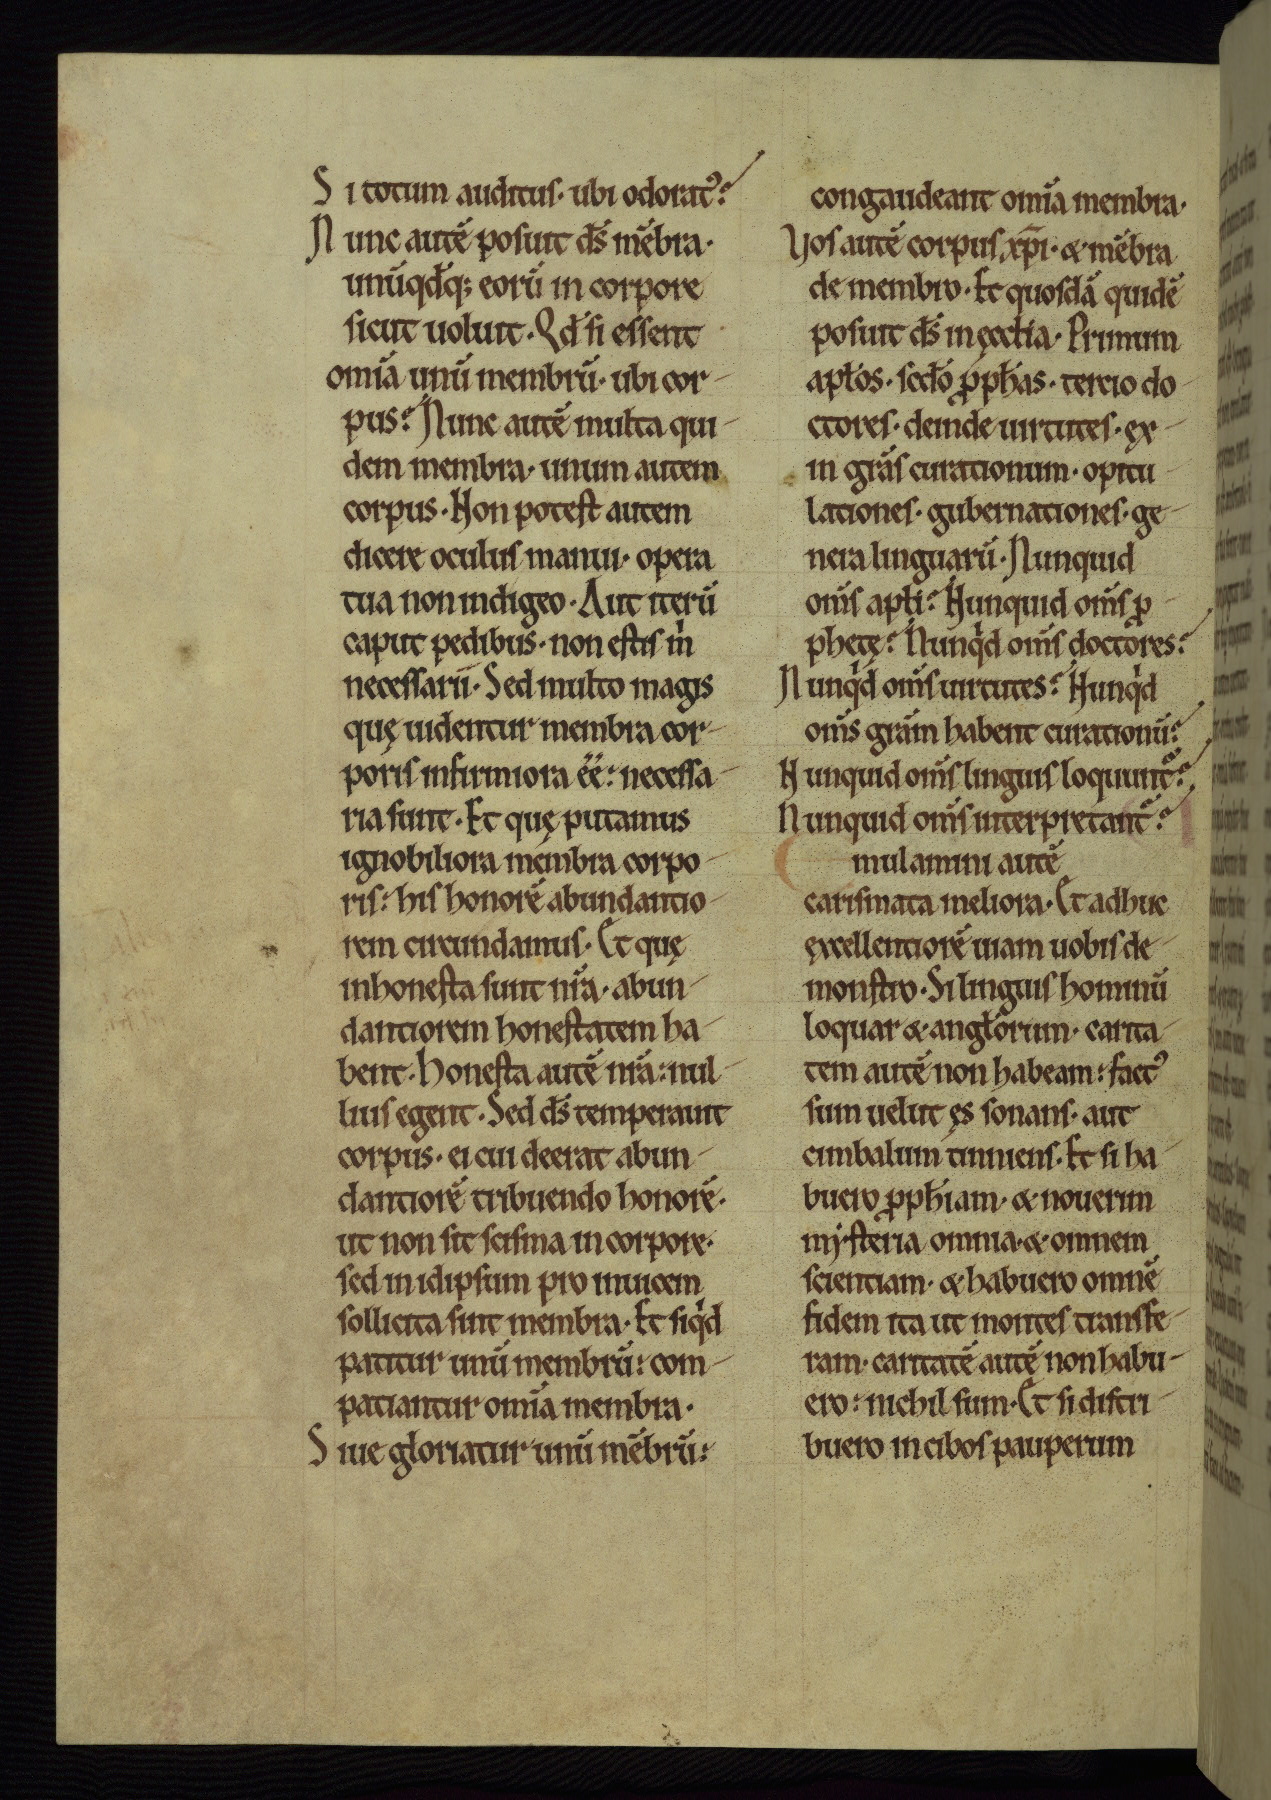 Si totum auditus· ubi odorat᾽?
Nunc autē posuit d̄s mēbra·
unūq̄dq; eorū in corpore
sicut uoluit· Qd̄ si essent
om̄ia unū membrū· ubi cor-
pus? Nunc autē multa qui-
dem membra· unum autem
corpus· Non potest autem
dicere oculus manui· opera
tua non indigeo· Aut iterū
caput pedibus· non estis m̄
necessarii· Sed multo magis
quę uidentur membra cor-
poris infirmiora ēē: necessa-
ria sunt· Et quę putamus
ignobiliora membra corpo-
ris: his honorē abundantio-
rem circundamus· Et quę
inhonesta sunt nr̄a· abun-
dantiorem honestatem ha-
bent· Honesta autē nr̄a: nul-
lius egent· Sed d̄s temperauit
corpus· ei cui deerat abun-
dantiorē tribuendo honorē·
ut non sit scisma in corpore·
sed in idipsum pro inuicem
sollicita sint membra· Et siq̇d
patitur unū membrū: com-
patiantur om̄ia membra·
Siue gloriatur unū mēbrū:
congaudeant om̄ia membra·
Vos autē corpus xp̄i· & mēbra
de membro· Et quosdā quidē
posuit d̄s in ęccl̄ia· Primum
apl̄os· scd̄o ꝓph̄as· tercio do-
ctores· deinde uirtutes· ex-
in grās curationum· opitu-
lationes· gubernationes· ge-
nera linguarū· Nunquid
om̄s apl̄i? Nunquid om̄s ꝓ-
phetę? Nunq̇d om̄s doctores?
Nunq̇d om̄s uirtutes? Nunq̇d
om̄s grām habent curationū?
Nunquid om̄s linguis loquunt᷑?
Nunquid om̄s interpretant᷑?
mulamini autē
carismata meliora· Et adhuc
excellentiorē uiam uobis de-
monstro· Si linguis hominū
loquar & angl̄orum· carita-
tem autē non habeam: fact᾽
sum uelut ęs sonans· aut
cimbalum tinniens· Et si ha-
buero ꝓph̄iam· & nouerim
mysteria omnia· & omnem
scientiam· & habuero omnē
fidem ita ut montes transfe-
ram· caritatē autē non habu-
ero: nichil sum· Et si distri-
buero in cibos pauperum